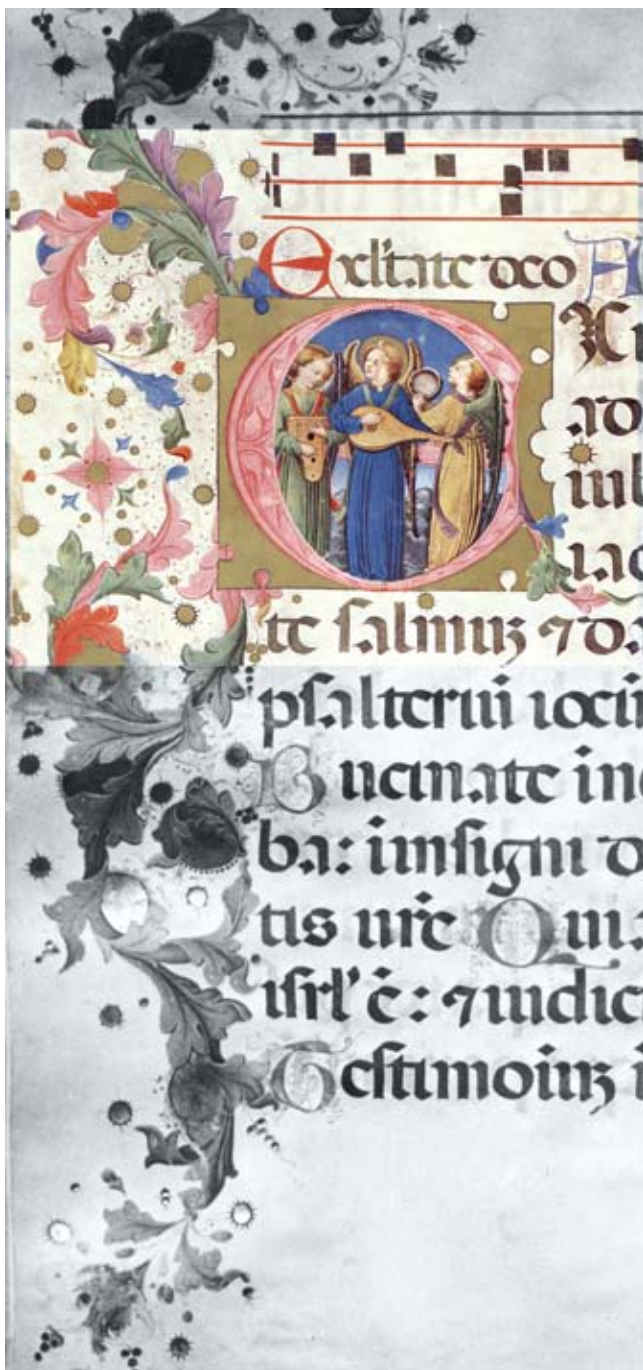 Exl'tate deo A
te salmuz ⁊ da
psalteriu iocu
Bucinate in
ba: i insigni d
tis ure Qui
isrl' ē: ⁊ iudic
Testimoiuz i